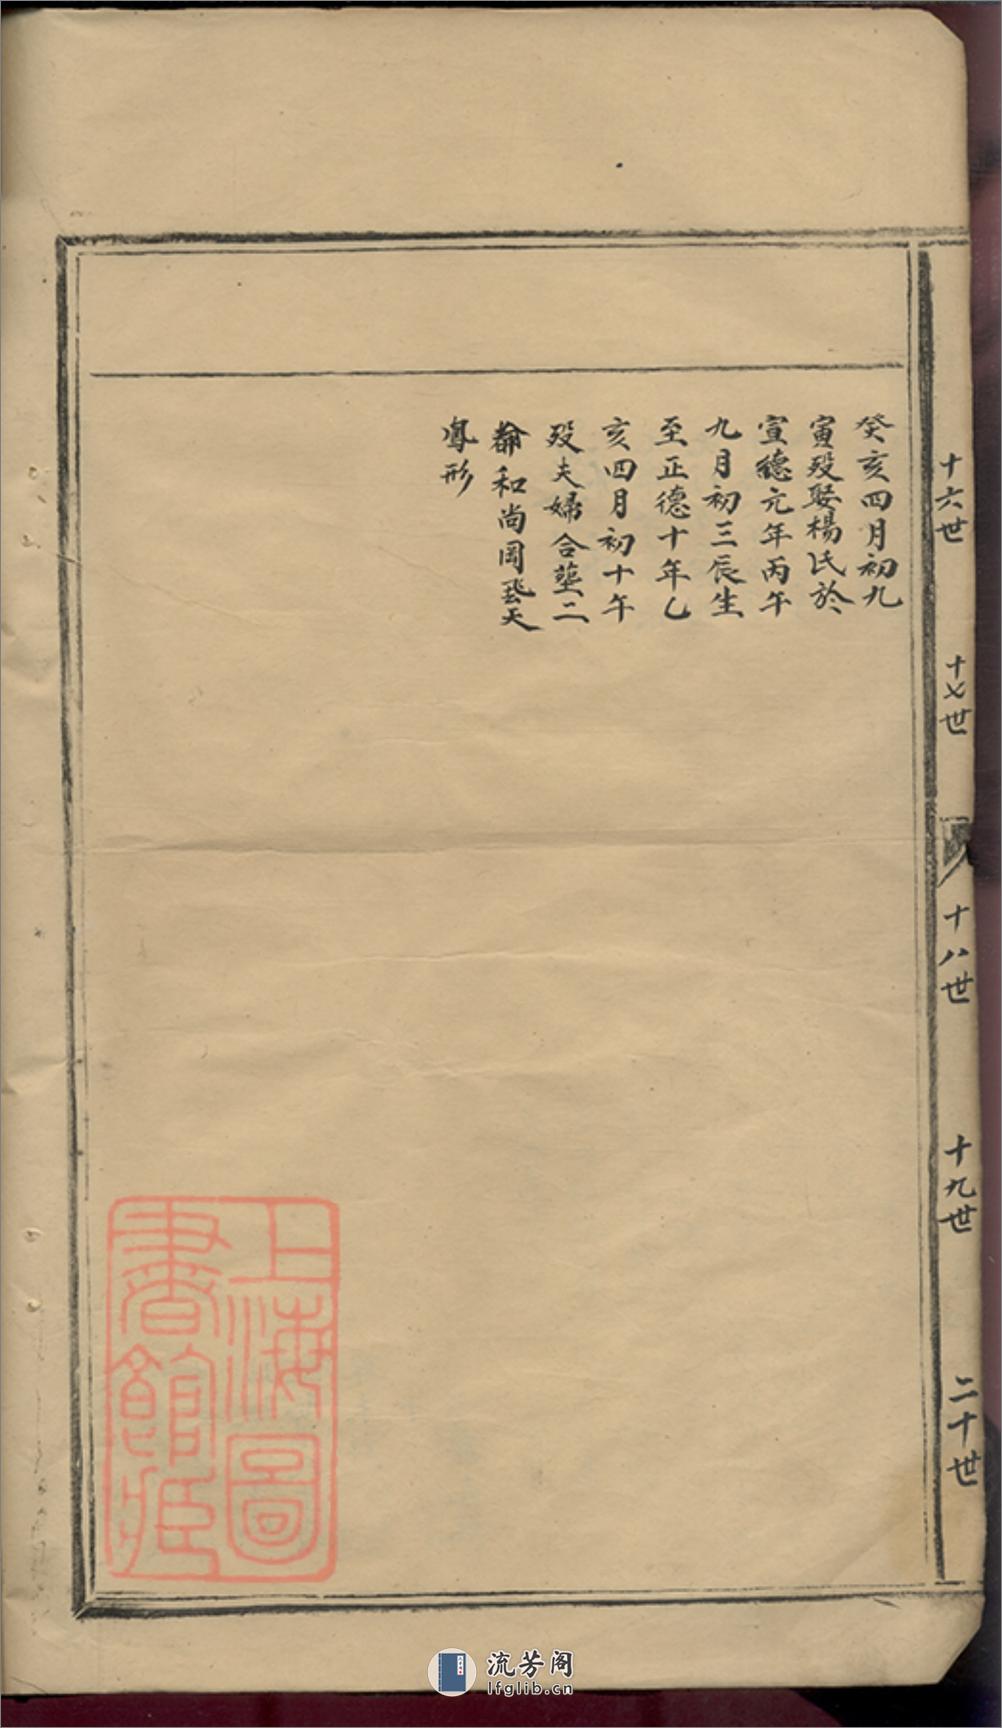 十六世
十七世
十八世
十九世
二十世
癸亥四月初九
寅殁娶楊氏於
宣德元年丙午
九月初三辰生
至正德十年乙
亥四月初十午
殁夫婦合塟二
都和尚岡飛天
鳳形
上海圖
書館藏
流芳阁
lfglib.cn